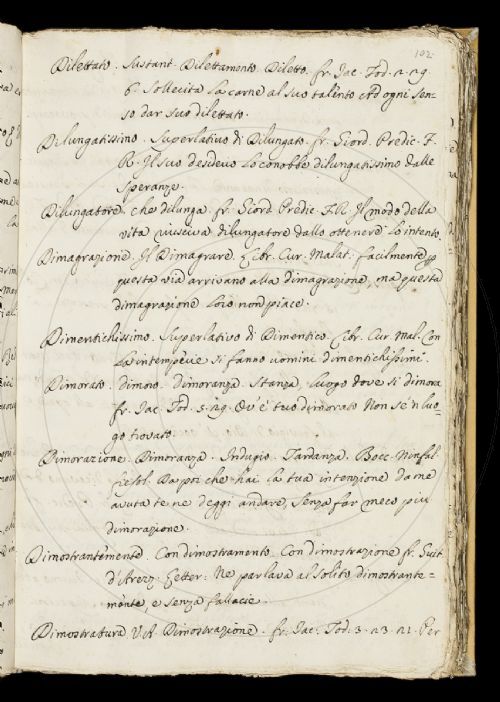 102.
Dilettato. Sustant. Dilettamento. Diletto. fr. Jac. Tod. 2. 29.
6. Sollecita la carne al suo talento Ad ogni sen-
so dar suo dilettato.
Dilungatissimo. Superlativo di Dilungato. fr. Giord. Predic. F.
R. Il suo desideio lo conobbe dilungatissimo dalle
speranze.
Dilungatore. che dilunga. fr. Giord Predic. F.R. Il modo della
vita riusciva dilungatore dallo ottenere lo intento
Dimagrazione. Il Dimagrare. Libr. Cur. Malat. facilmente p
questa via arrivano alla dimagrazione, ma questa
dimagrazione loro non piace.
Dimentichissimo. Superlativo di Dimentico. Libr. Cur. Mal. Con
la intemperie si fanno uomini dimentichissimi.
Dimorato. dimoro. dimoranza. Stanza, luogo dove si dimora
fr. Jac. Tod. 5. 29. Ov'è tuo dimorato Non se'n luo-
go trovato.
Dimorazione. Dimoranza. Indugio. Tardanza. Bocc. Ninfal.
Fiesol. Da poi che hai la tua intenzione da me
avuta te ne deggi andare, senza far meco più
dimorazione.
Dimostrantemente. Con dimostramento. Con dimostrazione fr. Guit
d'Arezz. Letter. Ne parlava al solito dimostrante-
mente, e senza fallacie.
Dimostratura V.A. Dimostrazione. fr. Jac. Tod. 3. 23. 21. Per